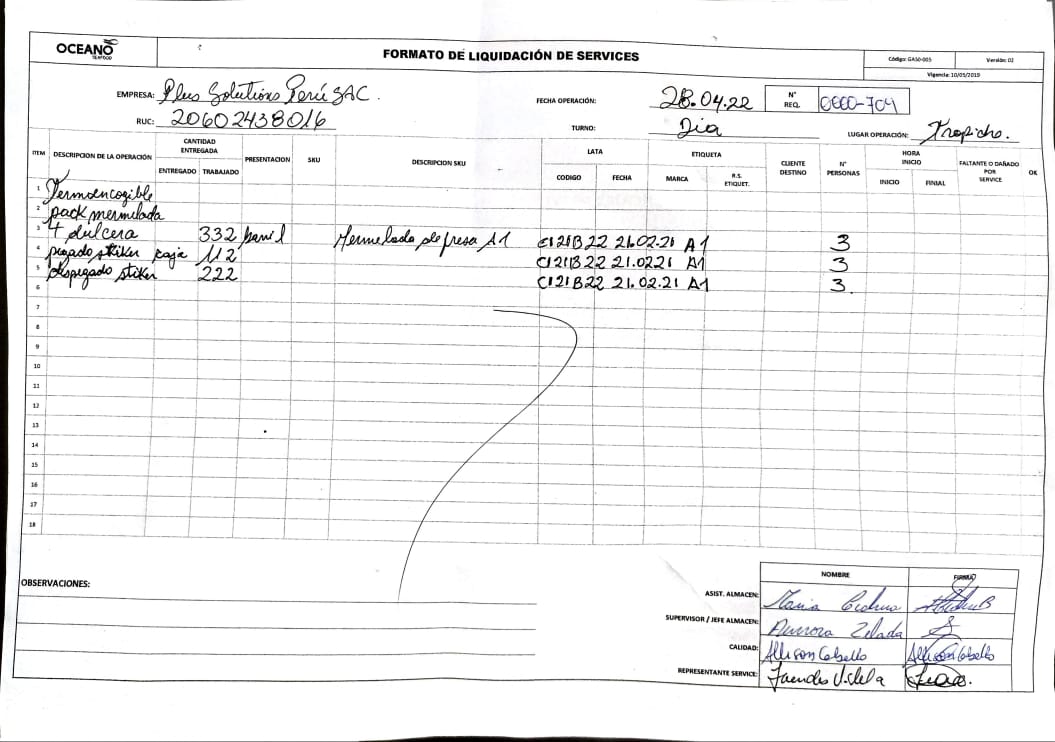 OCEANO
SEAFOOD
FORMATO DE LIQUIDACIÓN DE SERVICES
Código: GA50-005 Versión: 02
Vigencia: 10/05/2019
EMPRESA: Plus Solutions Perú SAC.
RUC: 20602438016
FECHA OPERACIÓN: 28.04.22
N° REQ. 0000-704
TURNO: Dia
LUGAR OPERACIÓN: Trapiche.
ITEM DESCRIPCION DE LA OPERACIÓN CANTIDAD ENTREGADA PRESENTACION SKU DESCRIPCION SKU LATA ETIQUETA CLIENTE DESTINO N° PERSONAS HORA INICIO FALTANTE O DAÑADO POR SERVICE OK
ENTREGADO TRABAJADO CODIGO FECHA MARCA R.S. ETIQUET. INICIO FINIAL
1 Termoencogible
2 pack mermelada
3 4 dulcera 332 Mermelada de fresa A1 C121B22 21.02.21 A1 3
4 pegado stiker caja 112 C121B22 21.02.21 A1 3
5 despegado stiker 222 C121B22 21.02.21 A1 3.
6
7
8
9
10
11
12
13
14
15
16
17
18
OBSERVACIONES:
NOMBRE FIRMA
ASIST. ALMACEN: Maria
SUPERVISOR / JEFE ALMACEN: Aurora Zelada
CALIDAD: Allison Cabello Allison Cabello
REPRESENTANTE SERVICE: